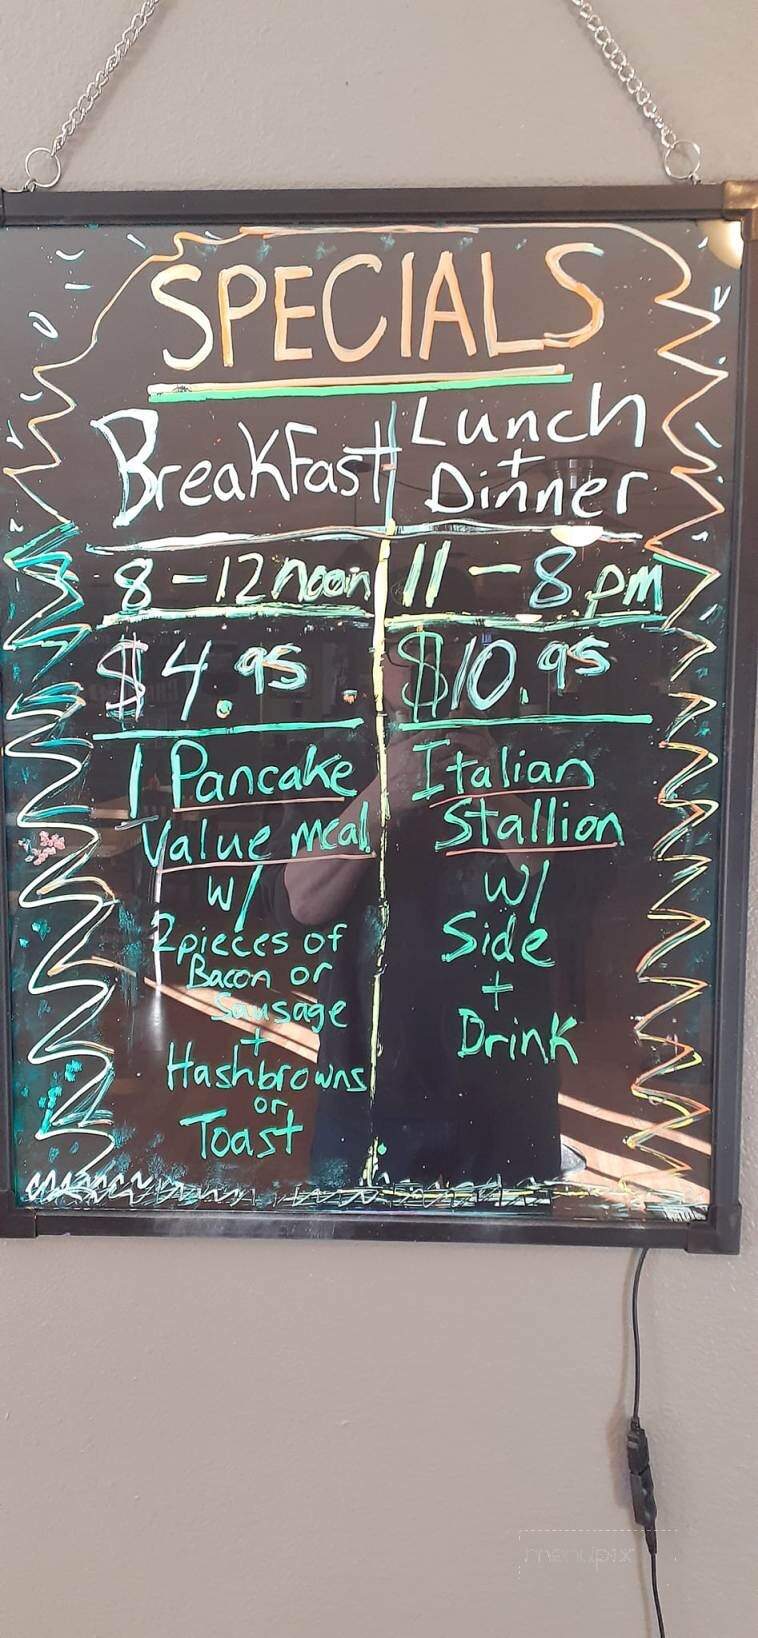 SPECIALS
Breakfast
8-12 noon
$4.95
1 Pancake
Value meal
w/
2 pieces of
Bacon or
Sausage
+
Hashbrowns
or
Toast
Lunch
+
Dinner
11-8 pm
$10.95
Italian
Stallion
w/
Side
+
Drink
menupix